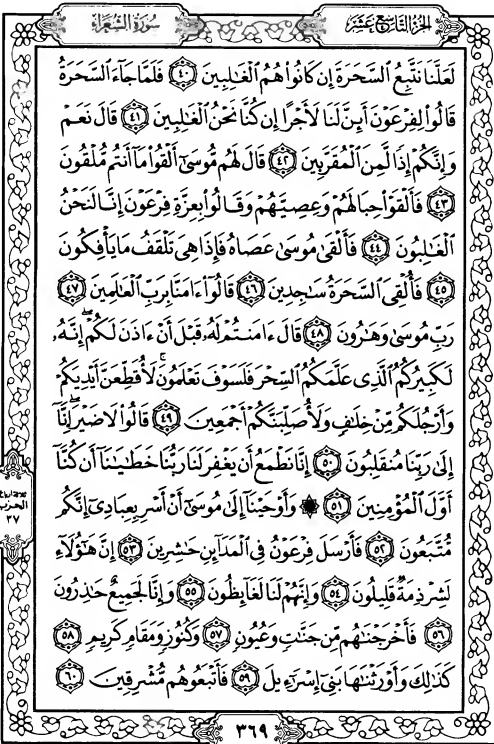 الجزء التاسع عشر
سورة الشعراء
لَعَلَّنَا نَتَّبِعُ السَّحَرَةَ إِن كَانُوا هُمُ الْغَالِبِينَ ٤٠ فَلَمَّا جَاءَ السَّحَرَةُ
قَالُوا لِفِرْعَوْنَ أَئِنَّ لَنَا لَأَجْرًا إِن كُنَّا نَحْنُ الْغَالِبِينَ ٤١ قَالَ نَعَمْ
وَإِنَّكُمْ إِذًا لَّمِنَ الْمُقَرَّبِينَ ٤٢ قَالَ لَهُم مُّوسَىٰ أَلْقُوا مَا أَنتُم مُّلْقُونَ
٤٣ فَأَلْقَوْا حِبَالَهُمْ وَعِصِيَّهُمْ وَقَالُوا بِعِزَّةِ فِرْعَوْنَ إِنَّا لَنَحْنُ
الْغَالِبُونَ ٤٤ فَأَلْقَىٰ مُوسَىٰ عَصَاهُ فَإِذَا هِيَ تَلْقَفُ مَا يَأْفِكُونَ
٤٥ فَأُلْقِيَ السَّحَرَةُ سَاجِدِينَ ٤٦ قَالُوا ءَامَنَّا بِرَبِّ الْعَالَمِينَ ٤٧
رَبِّ مُوسَىٰ وَهَارُونَ ٤٨ قَالَ ءَامَنتُمْ لَهُ قَبْلَ أَنْ ءَاذَنَ لَكُمْ ۖ إِنَّهُ
لَكَبِيرُكُمُ الَّذِي عَلَّمَكُمُ السِّحْرَ فَلَسَوْفَ تَعْلَمُونَ ۚ لَأُقَطِّعَنَّ أَيْدِيَكُمْ
وَأَرْجُلَكُم مِّنْ خِلَافٍ وَلَأُصَلِّبَنَّكُمْ أَجْمَعِينَ ٤٩ قَالُوا لَا ضَيْرَ ۖ إِنَّا
إِلَىٰ رَبِّنَا مُنقَلِبُونَ ٥٠ إِنَّا نَطْمَعُ أَن يَغْفِرَ لَنَا رَبُّنَا خَطَايَانَا أَن كُنَّا
أَوَّلَ الْمُؤْمِنِينَ ٥١ ۞ وَأَوْحَيْنَا إِلَىٰ مُوسَىٰ أَنْ أَسْرِ بِعِبَادِي إِنَّكُم
مُّتَّبَعُونَ ٥٢ فَأَرْسَلَ فِرْعَوْنُ فِي الْمَدَائِنِ حَاشِرِينَ ٥٣ إِنَّ هَٰؤُلَاءِ
لَشِرْذِمَةٌ قَلِيلُونَ ٥٤ وَإِنَّهُمْ لَنَا لَغَائِظُونَ ٥٥ وَإِنَّا لَجَمِيعٌ حَاذِرُونَ
٥٦ فَأَخْرَجْنَاهُم مِّن جَنَّاتٍ وَعُيُونٍ ٥٧ وَكُنُوزٍ وَمَقَامٍ كَرِيمٍ ٥٨
كَذَٰلِكَ وَأَوْرَثْنَاهَا بَنِي إِسْرَائِيلَ ٥٩ فَأَتْبَعُوهُم مُّشْرِقِينَ ٦٠
الحزب
٣٧
٣٦٩